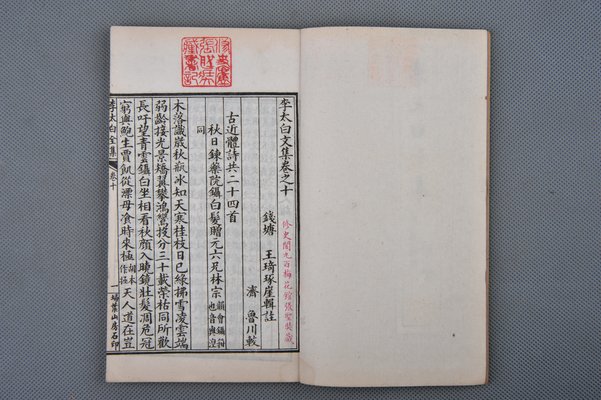 李太白文集卷之十
錢塘　王琦琢崖輯註
修史閣九百梅花館張
濟　魯川較
古近體詩共二十四首
秋日鍊藥院鑷白髮贈元六兄林宗
同
木落識歲秋瓶冰知天寒桂枝日已綠拂雪凌雲端
弱齡接光景矯翼攀鴻鸞投分三十載榮祜同所歡
長吁望青雲鑷白坐相看秋顏入曉鏡壯髮凋危冠
窮與鮑生賈飢從漂母飡時來極胡本作拯天人道在豈
李太白全集　卷十　一　掃葉山房石印